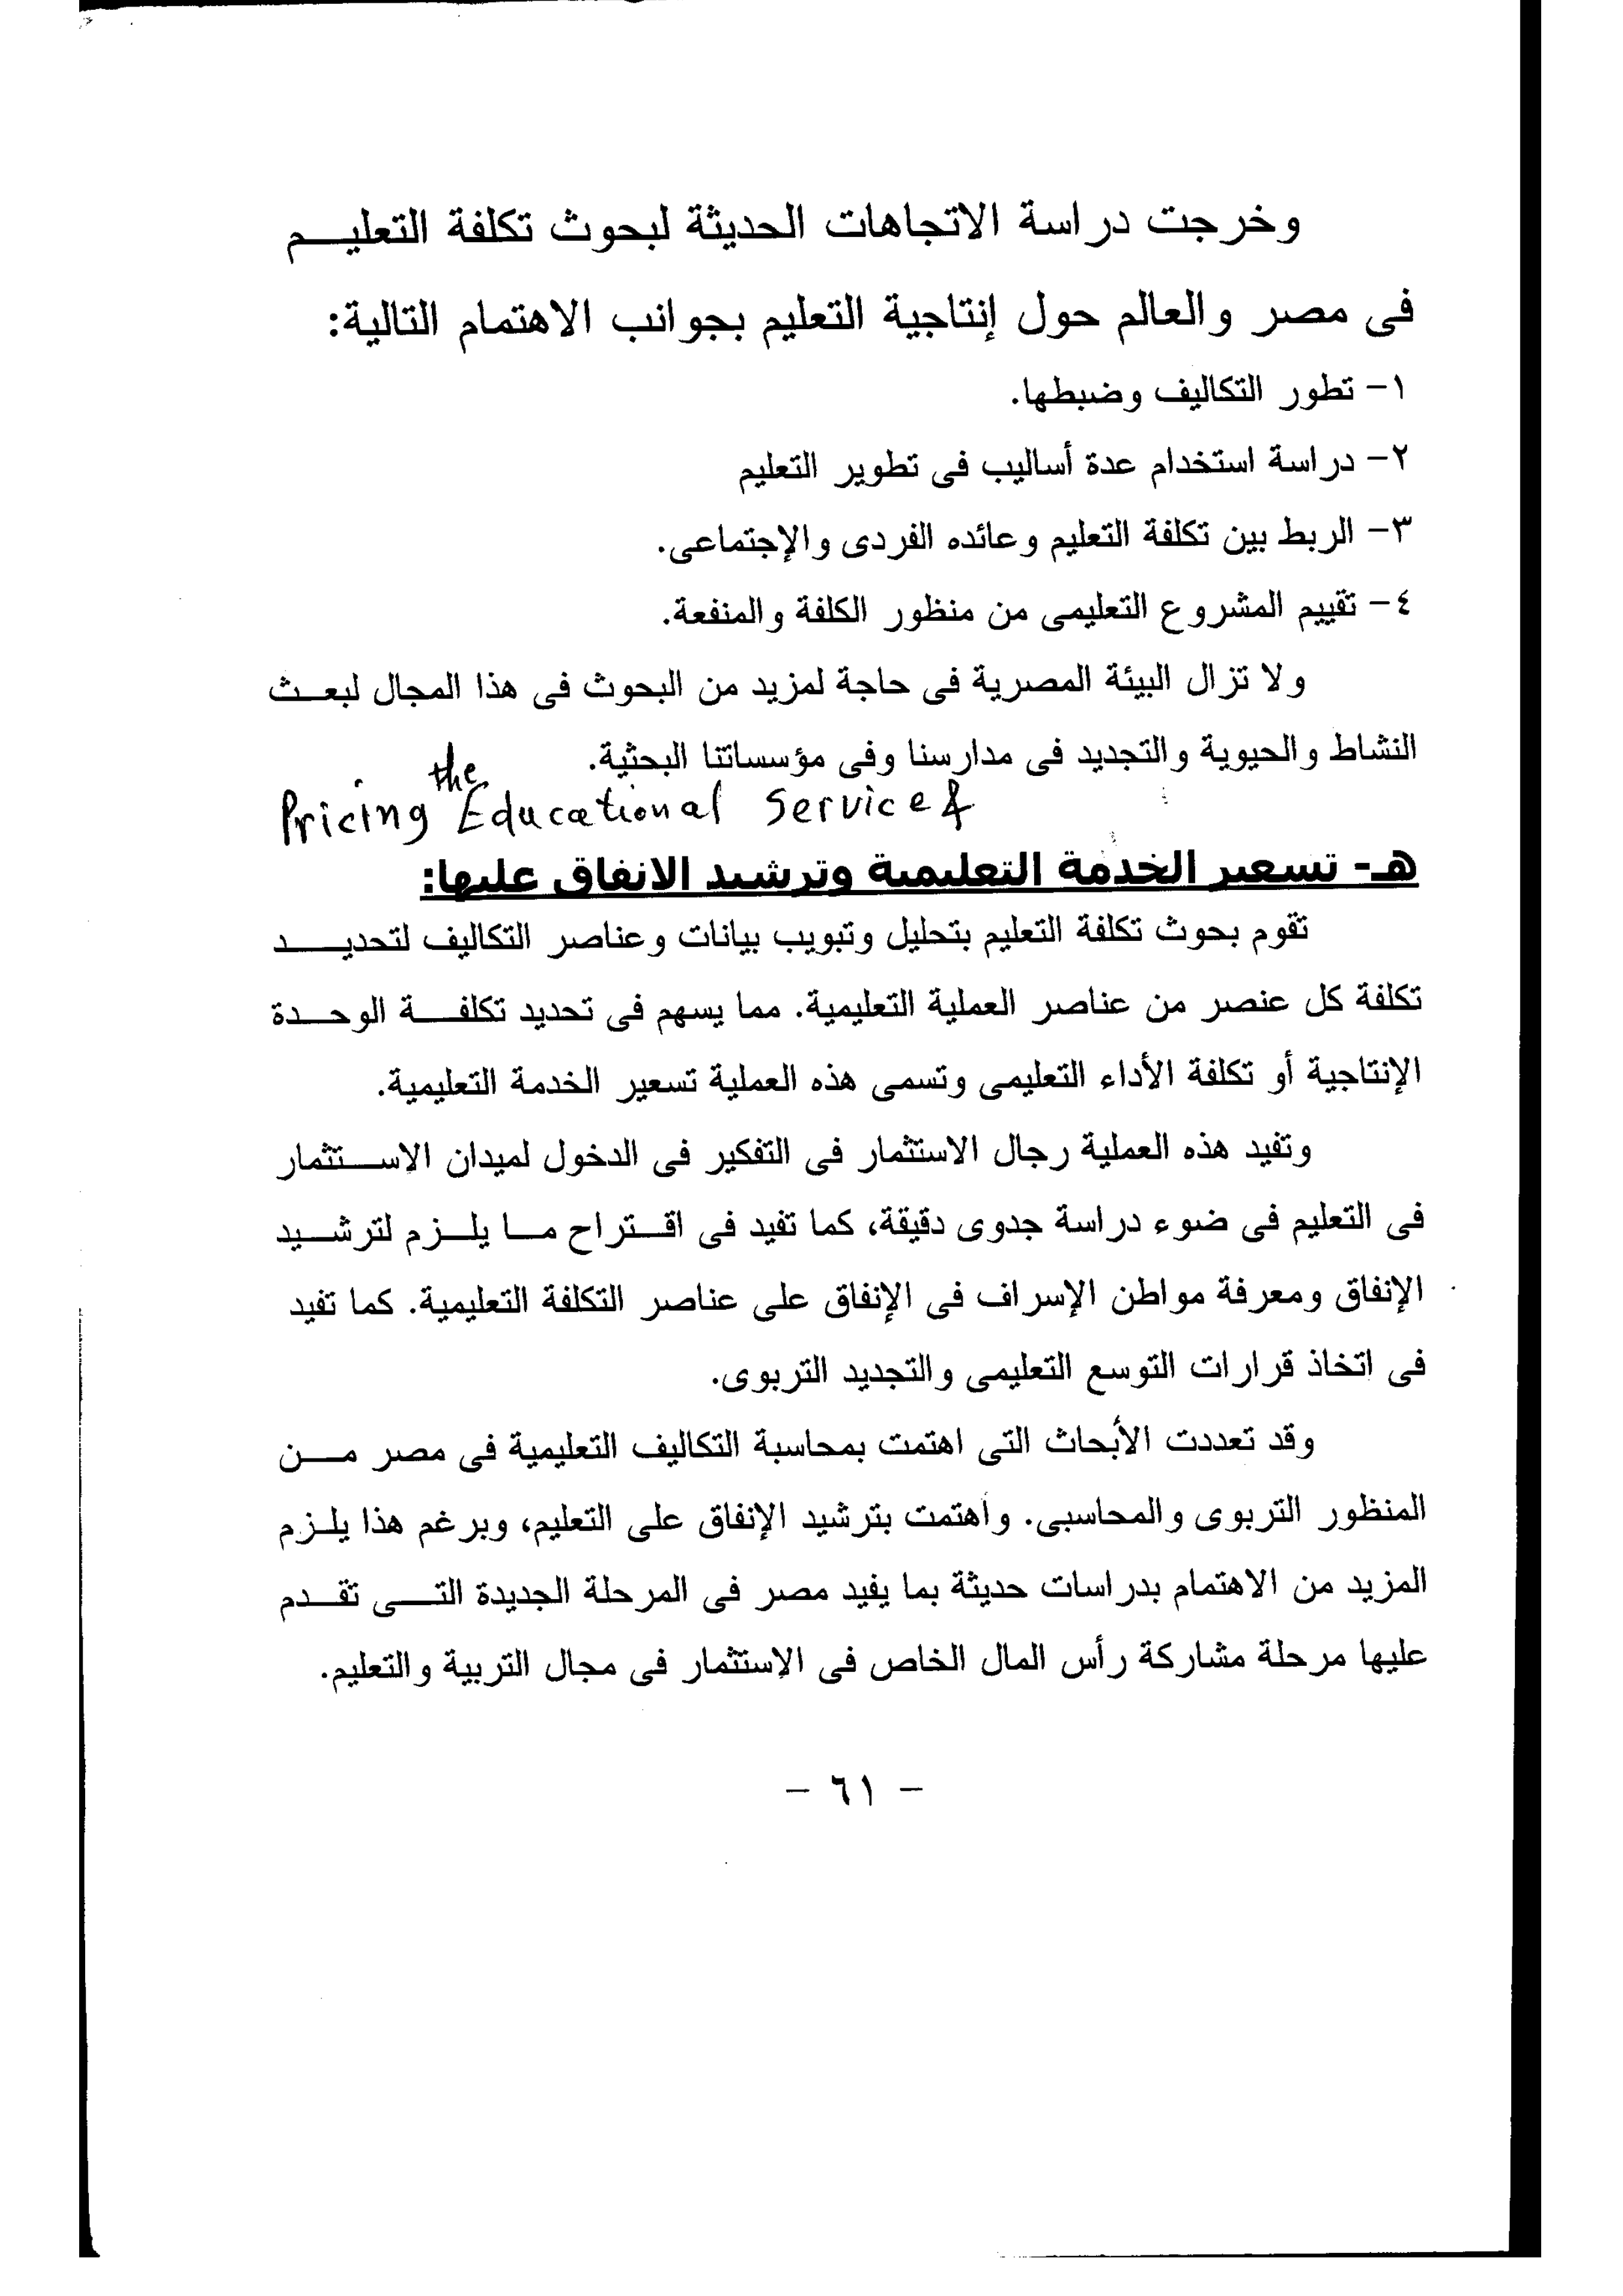 وخرجت دراسة الاتجاهات الحديثة لبحوث تكلفة التعليم
فى مصر والعالم حول إنتاجية التعليم بجوانب الاهتمام التالية:
١- تطور التكاليف وضبطها.
٢- دراسة استخدام عدة أساليب فى تطوير التعليم
٣- الربط بين تكلفة التعليم وعائده الفردى والإجتماعى.
٤- تقييم المشروع التعليمى من منظور الكلفة والمنفعة.
ولا تزال البيئة المصرية فى حاجة لمزيد من البحوث فى هذا المجال لبعث
النشاط والحيوية والتجديد فى مدارسنا وفى مؤسساتنا البحثية.
Pricing the Educational Service
هـ- تسعير الخدمة التعليمية وترشيد الانفاق عليها:
تقوم بحوث تكلفة التعليم بتحليل وتبويب بيانات وعناصر التكاليف لتحديد
تكلفة كل عنصر من عناصر العملية التعليمية. مما يسهم فى تحديد تكلفة الوحدة
الإنتاجية أو تكلفة الأداء التعليمى وتسمى هذه العملية تسعير الخدمة التعليمية.
وتفيد هذه العملية رجال الاستثمار فى التفكير فى الدخول لميدان الإستثمار
فى التعليم فى ضوء دراسة جدوى دقيقة، كما تفيد فى اقتراح ما يلزم لترشيد
الإنفاق ومعرفة مواطن الإسراف فى الإنفاق على عناصر التكلفة التعليمية. كما تفيد
فى اتخاذ قرارات التوسع التعليمى والتجديد التربوى.
وقد تعددت الأبحاث التى اهتمت بمحاسبة التكاليف التعليمية فى مصر من
المنظور التربوى والمحاسبى. واهتمت بترشيد الإنفاق على التعليم، وبرغم هذا يلزم
المزيد من الاهتمام بدراسات حديثة بما يفيد مصر فى المرحلة الجديدة التى تقدم
عليها مرحلة مشاركة رأس المال الخاص فى الإستثمار فى مجال التربية والتعليم.
- ٦١ -